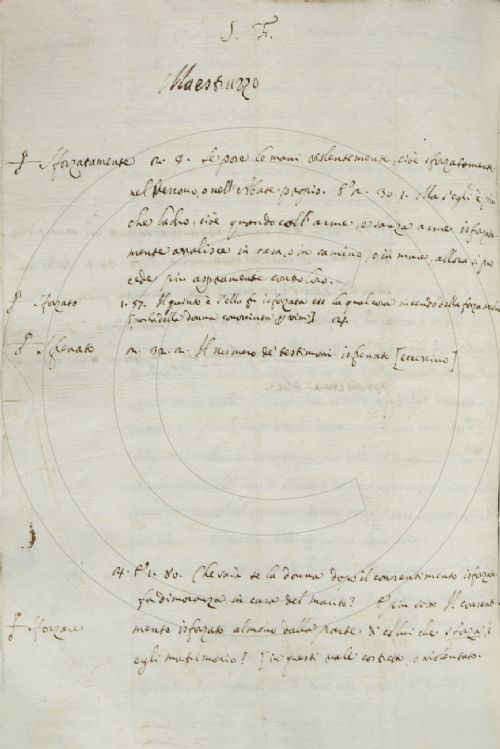 S. F.
Maestruzzo
Sforzatamente 2. 9. Se pone le mani violentemente, cioè isforzatamente,
nel Vescovo, o nell'Abate proprio. E 2. 30. 1. Ma s'egli è più
che ladro, cioè quando coll'arme, o sanza arme isforzata-
mente assalisce in casa, o in camino, o in mare, allora si pro
cede più aspramente contro loro.
Sforzato 1. 57. Il quinto è s'ella fu isforzata la qual cosa intendo della forza
[parla della donna 24.
Sfrenato 2. 32. 2. Il numero de' testimoni isfrenato [eccessivo]
24. E 1. 80. Che sarà se la donna dopo il consentimento isforzato
fa dimoranza in casa del marito? E più sotto Il consenti-
Sforzare mento isforzato almeno dalla parte di colui che sforza, è
egli matrimonio? [in questi vale costretto, o violentato.